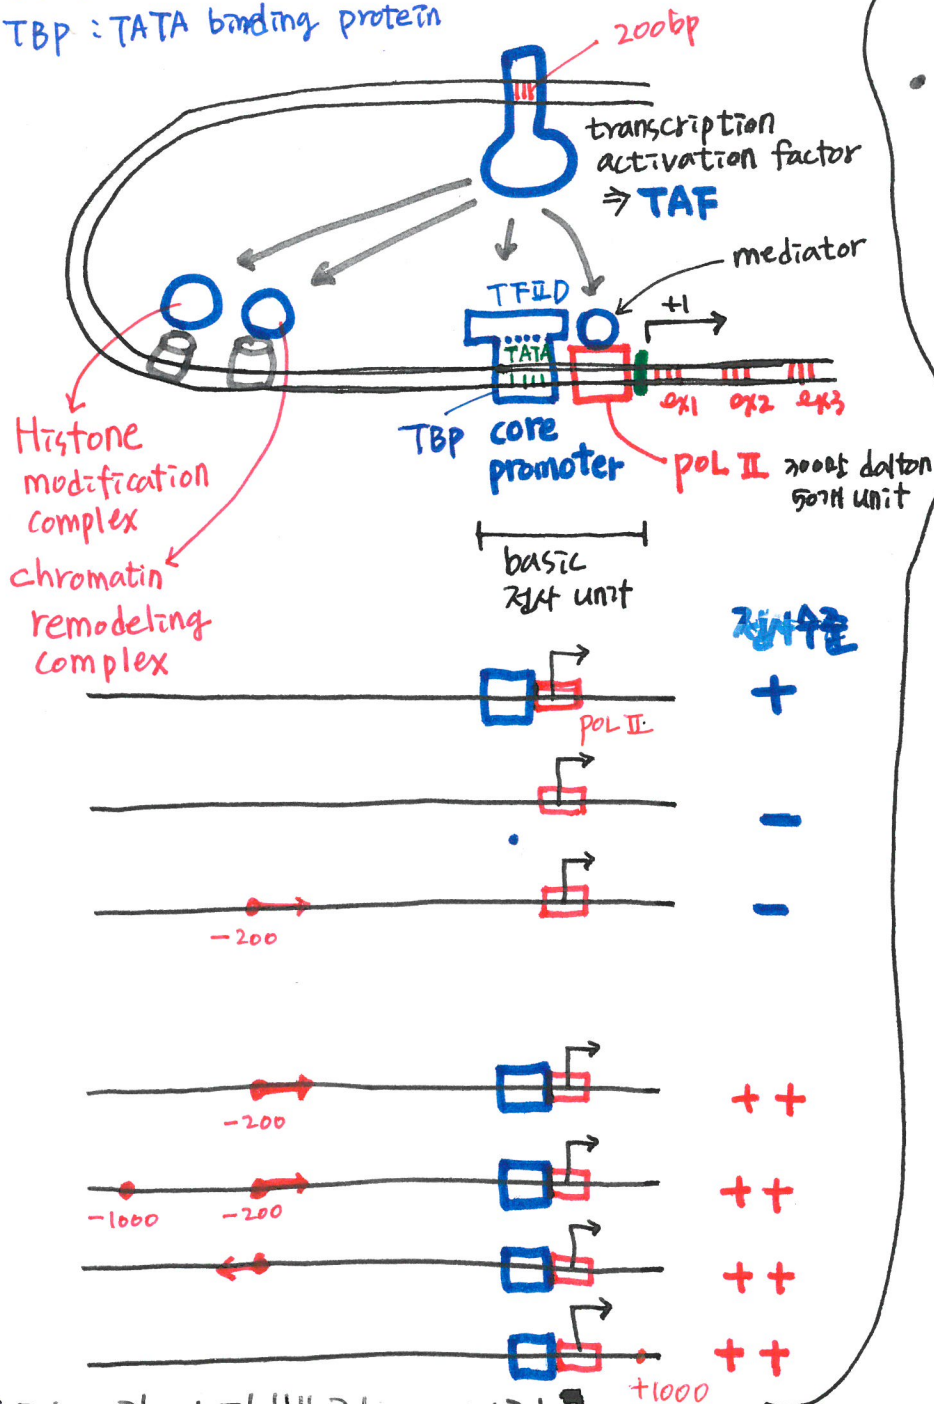 TBP : TATA binding protein
200bp
transcription
activation factor
⇒ TAF
mediator
TFⅡD
+1
TATA
ex1 ex2 ex3
TBP
core
promoter
pol Ⅱ 300만 dalton
50개 unit
Histone
modification
complex
chromatin
remodeling
complex
basic
전사 unit
전사수준
+
pol Ⅱ
−
−
−200
−200
++
−1000 −200
++
++
++
+1000